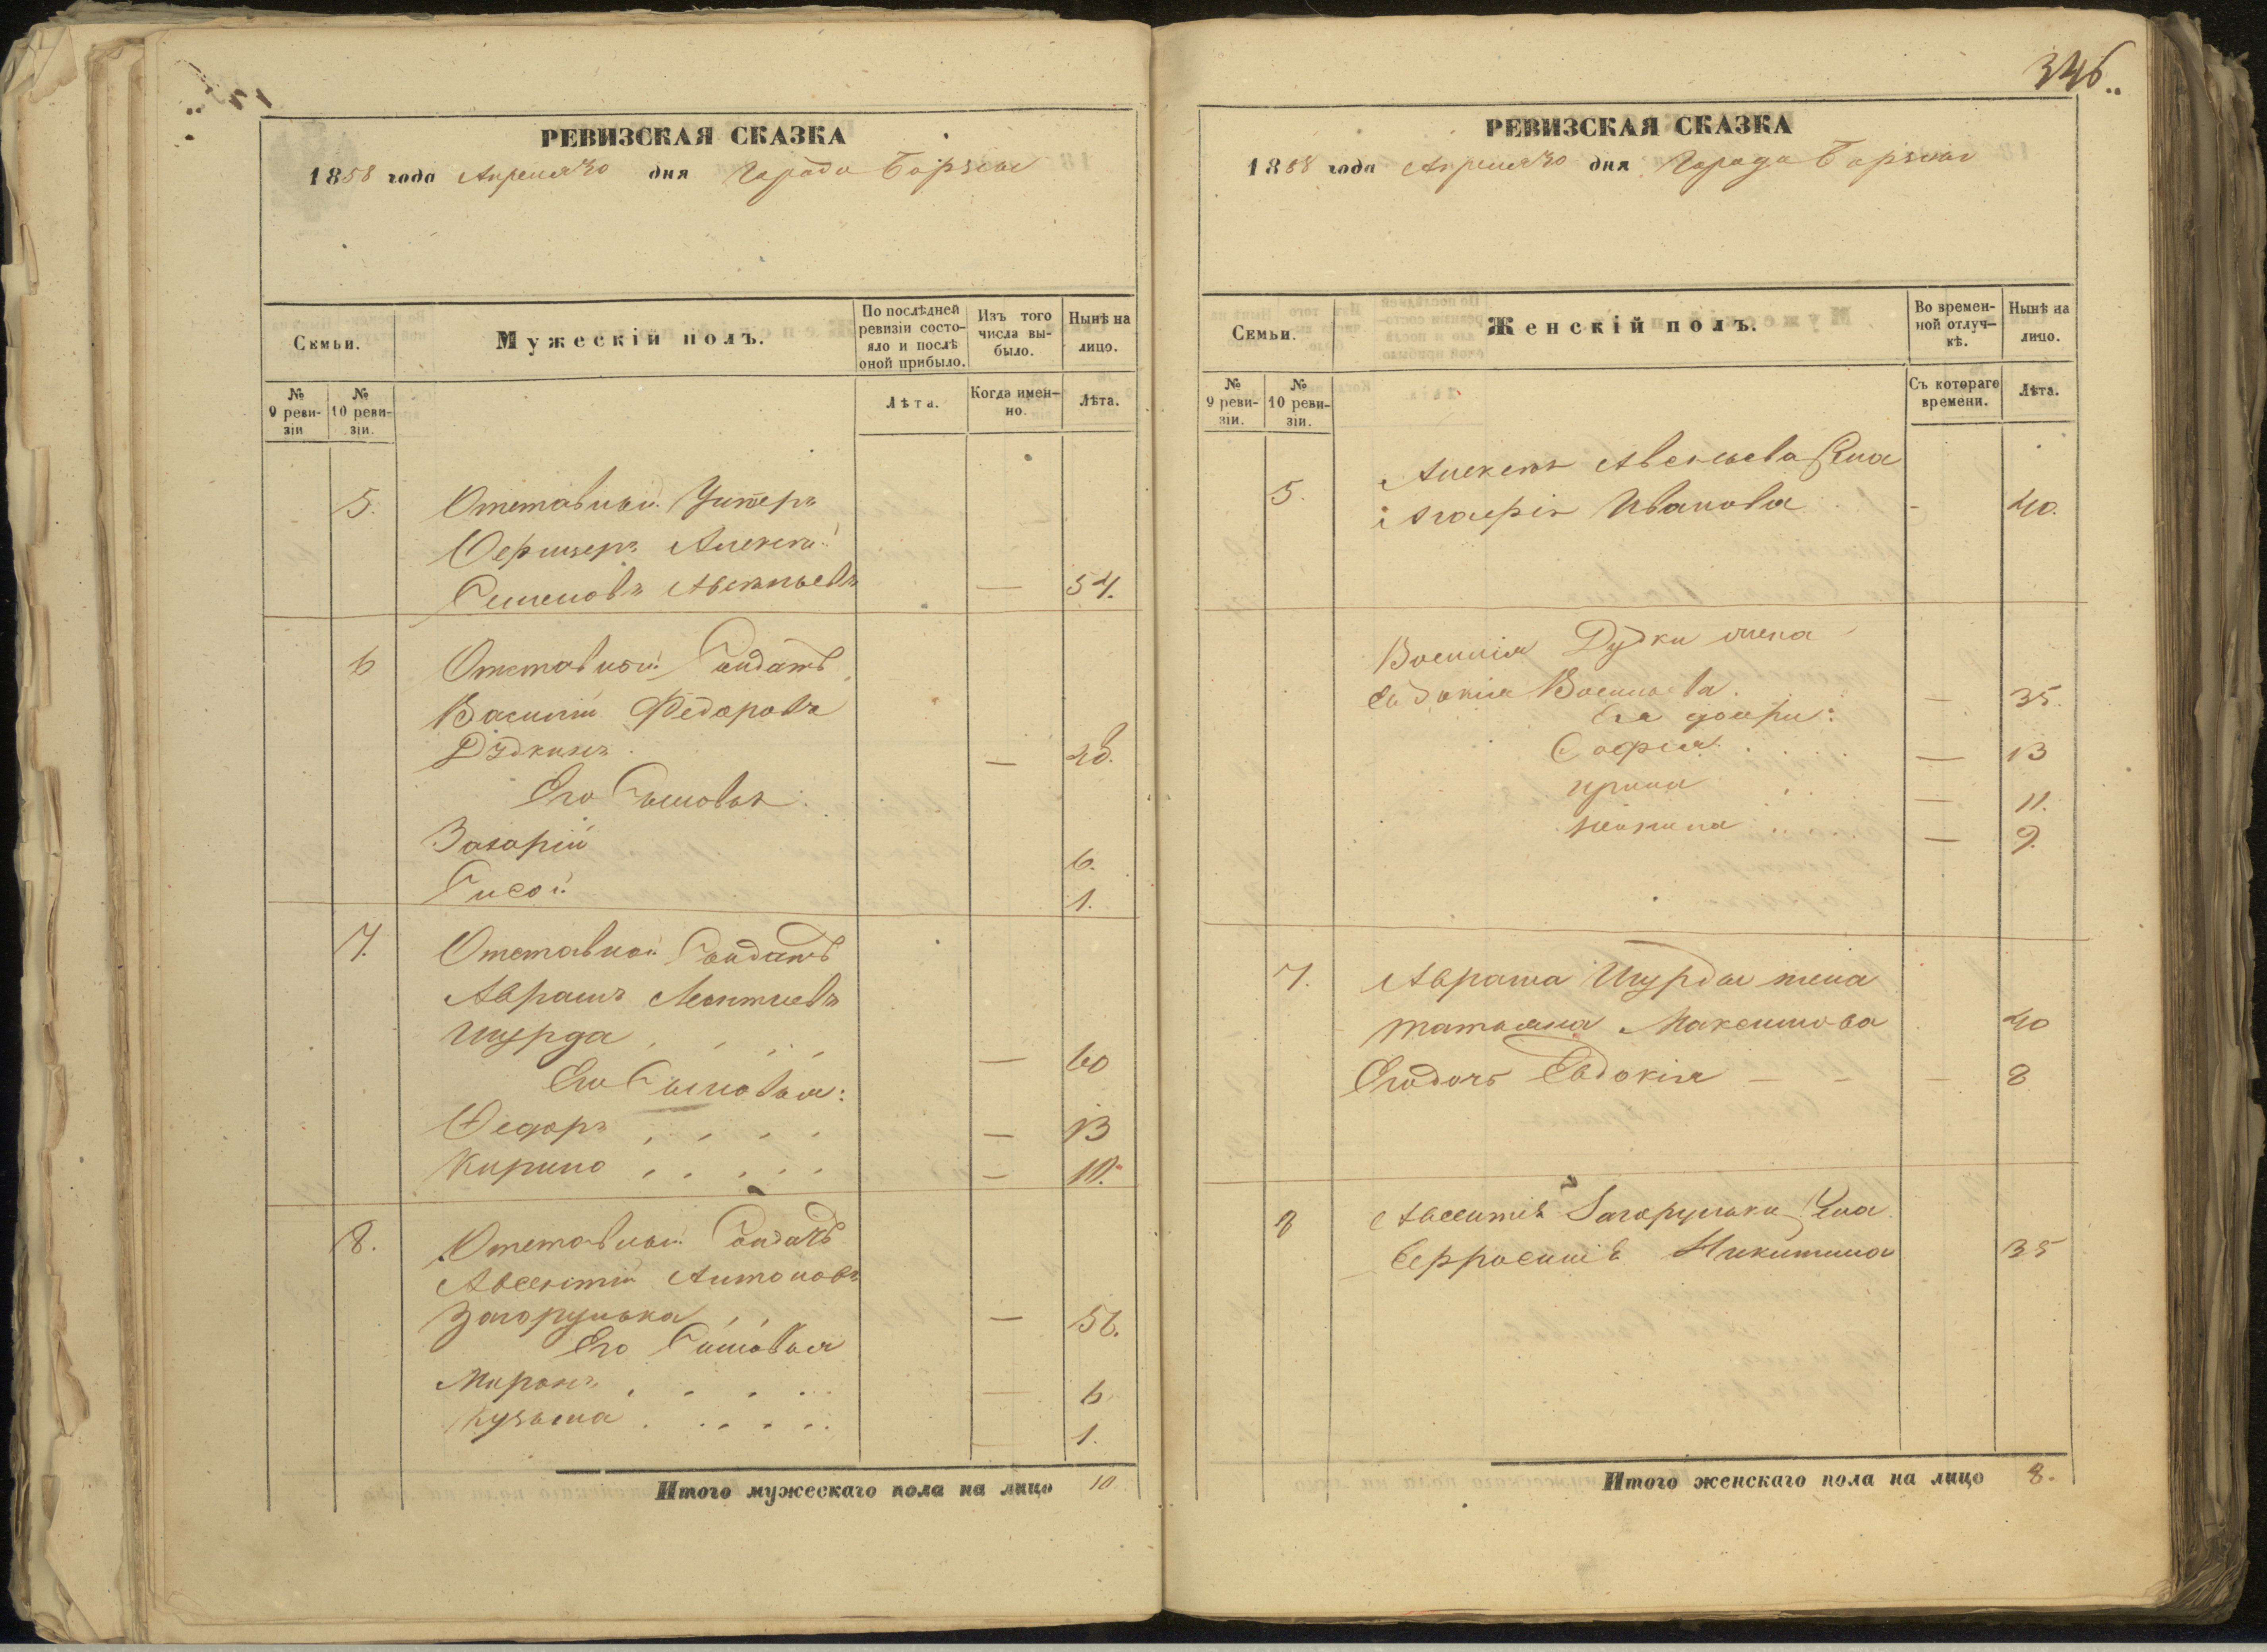 РЕВИЗСКАЯ СКАЗКА
1858 года Апреля 30 дня Города Борзны
Семьи.
Мужескій полъ.
По послѣдней ревизіи состо-
яло и послѣ оной прибыло.
Изъ того числа вы-
было.
Нынѣ на лицо.
№ 9 реви-
зіи
№ 10 реви-
зіи.
Лѣта.
Когда имен-
но.
Лѣта.
5. Отставный Унтеръ
Офицеръ Алексѣй
Семеновъ — 54.
6 Отставной Солдатъ
Василій Федоровъ
Дудкинъ —
Его Сыновья:
Захарій 6.
Сисой 1.
7. Отставной Солдатъ
Авраамъ Леонтіевъ
Шурда — 60
Его Сыновья:
Федоръ — 13
Кирило — 10.
8. Отставной Солдатъ
Авсентій Антоновъ
Загорулька — 56.
Его Сыновья
Миронъ — 6
Кузьма 1.
Итого мужескаго пола на лицо 10
346
РЕВИЗСКАЯ СКАЗКА
1858 года Апреля 30 дня Города Борзны
Семьи.
Женскій полъ.
Во времен-
ной отлуч-
кѣ.
Нынѣ на лицо.
№ 9 реви-
зіи.
№ 10 реви-
зіи.
Съ котораго времени.
Лѣта.
5. Алексѣя Жена
Иванова - 40.
Василія Дудки жена
Евдокія Васильева — 35.
Его дочери:
Софія — 13
Ирина — 11.
— 9.
7. Аврама Шурды жена
Татьяна Максимова 40
Его дочь Евдокія — 8
8 Авсентія Загорульки Жена
Ефросинія Никитина 35
Итого женскаго пола на лицо 8.